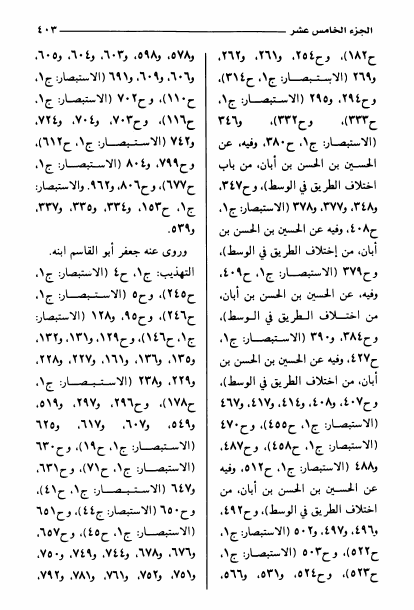 الجزء الخامس عشر
٤٠٣
ح١٨٢)، وح٢٥٤، و٢٦١، و٢٦٢،
و٢٦٩ (الاستبصار: ج١، ح٣١٤)،
وح٢٩٤، و٢٩٥ (الاستبصار: ج١،
ح٣٣٣)، وح٣٣٢، و٣٤٦
(الاستبصار: ج١، ح٣٨٠، وفيه، عن
الحسين بن الحسن بن أبان، من باب
اختلاف الطريق في الوسط)، وح٣٤٧،
و٣٤٨، و٣٧٧، و٣٧٨ (الاستبصار: ج١،
ح٤٠٨، وفيه عن الحسين بن الحسن بن
أبان، من إختلاف الطريق في الوسط)،
وح٣٧٩ (الاستبصار: ج١، ح٤٠٩،
وفيه، عن الحسين بن الحسن بن أبان،
من اختلاف الطريق في الوسط)،
وح٣٨٤، و٣٩٠ (الاستبصار: ج١،
ح٤٢٧، وفيه عن الحسين بن الحسن بن
أبان، من اختلاف الطريق في الوسط)،
وح٤٠٧، و٤٠٨، و٤١٤، و٤١٧، و٤٦٧
(الاستبصار: ج١، ح٤٥٥)، وح٤٧٠
(الاستبصار: ج١، ح٤٥٨)، وح٤٨٧،
و٤٨٨ (الاستبصار: ج١، ح٥١٢، وفيه
عن الحسين بن الحسن بن أبان، من
اختلاف الطريق في الوسط)، وح٤٩٢،
و٤٩٦، و٤٩٧، و٥٠٢ (الاستبصار: ج١،
ح٥٢٢)، وح٥٠٣ (الاستبصار: ج١،
ح٥٢٣)، وح٥٢٤، و٥٣١، و٥٦٦،
و٥٧٨، و٥٩٨، و٦٠٣، و٦٠٤، و٦٠٥،
و٦٠٦، و٦٠٩، و٦٩١ (الاستبصار: ج١،
ح١١٠)، وح٧٠٢ (الاستبصار: ج١،
ح١١٦)، وح٧٠٣، و٧٠٤، و٧٢٤،
و٧٤٢ (الاستبصار: ج١، ح٦١٢)،
وح٧٩٩، و٨٠٤ (الاستبصار: ج١،
ح٦٧٧)، وح٨٠٦، و٩٦٢. والاستبصار:
ج١، ح١٥٣، و٣٣٤، و٣٣٥، و٣٣٧،
و٥٣٩.
وروى عنه جعفر أبو القاسم ابنه.
التهذيب: ج١، ح٤ (الاستبصار: ج١،
ح٢٤٥)، وح٥ (الاستبصار: ج١،
ح٢٤٦)، وح٩٥، و١٢٨ (الاستبصار:
ج١، ح١٤٦)، وح١٢٩، و١٣١، و١٣٢،
و١٣٥، و١٣٦، و١٦١، و٢٢٧، و٢٢٨،
و٢٢٩، و٢٣٨ (الاستبصار: ج١،
ح١٧٨)، وح٢٩٦، و٢٩٧، و٥١٩،
و٥٤٩، و٦٠٧، و٦١٧، و٦٢٥
(الاستبصار: ج١، ح١٩)، وح٦٣٠
(الاستبصار: ج١، ح٧١)، وح٦٣١،
و٦٤٧ (الاستبصار: ج١، ح٤١)،
وح٦٥٠ (الاستبصار: ج٤٤)، وح٦٥١
(الاستبصار: ج١، ح٤٥)، وح٦٥٧،
و٦٧٦، و٦٧٨، و٧٤٤، و٧٤٩، و٧٥٠،
و٧٥١، و٧٥٢، و٧٦١، و٧٨١، و٧٩٢،